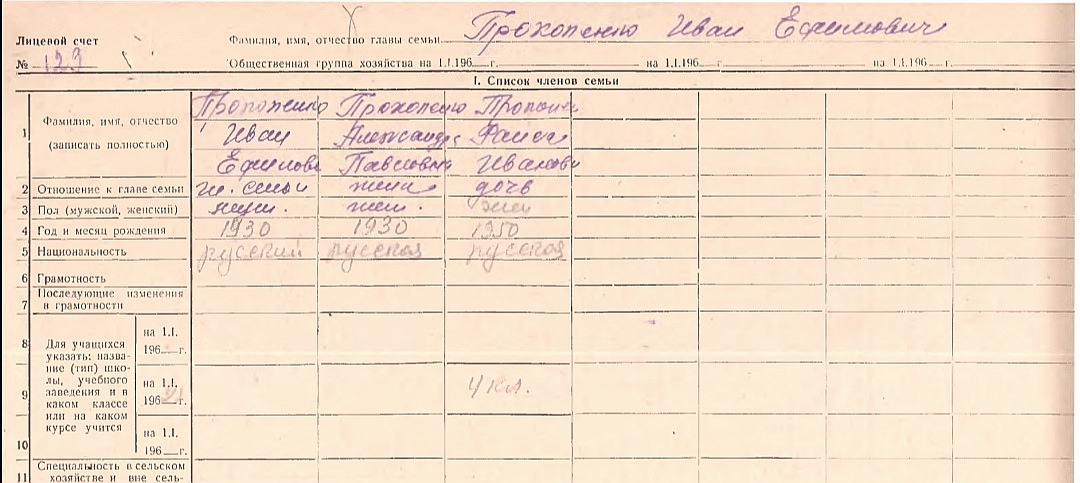 Лицевой счет
№ 123
Фамилия, имя, отчество главы семьи Прохопенко Иван Ефимович
Общественная группа хозяйства на 1.I.196 г. на 1.I.196 г. на 1.I.196 г.
I. Список членов семьи
1 Фамилия, имя, отчество (записать полностью)
Прохопенко Иван Ефимови
Прохопенко Александра Павловна
Иванов
2 Отношение к главе семьи гл. семьи жена дочь
3 Пол (мужской, женский) муж. жен. жен
4 Год и месяц рождения 1930 1930 1950
5 Национальность русский русская русская
6 Грамотность
7 Последующие изменения в грамотности
Для учащихся указать: название (тип) школы, учебного заведения и в каком классе или на каком курсе учится
8 на 1.I. 196 г.
9 на 1.I. 196 г. 4 кл.
10 на 1.I. 196 г.
11 Специальность в сельском
хозяйстве и вне сель-